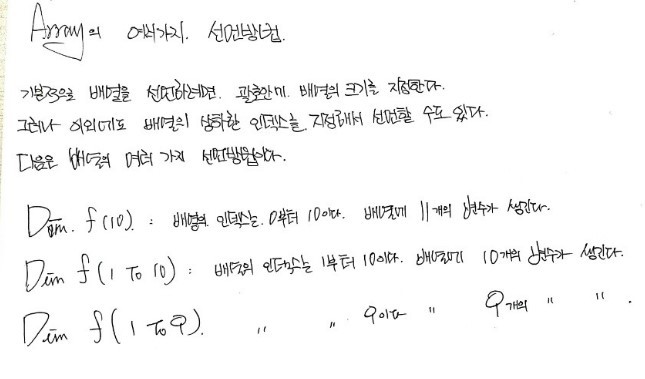 Array의 여러가지 선언방법.
기본적으로 배열을 선언하려면, 괄호안에 배열의 크기를 지정한다.
그러나 이외에도 배열의 상하한 인덱스를 지정해서 선언할 수도 있다.
다음은 배열의 여러 가지 선언방법이다.
Dim f(10) : 배열의 인덱스는 0부터 10이다. 배열에 11개의 변수가 생긴다.
Dim f(1 To 10) : 배열의 인덱스는 1부터 10이다. 배열에 10개의 변수가 생긴다.
Dim f(1 To 9). 〃 〃 9이다 〃 9개의 〃 〃 .